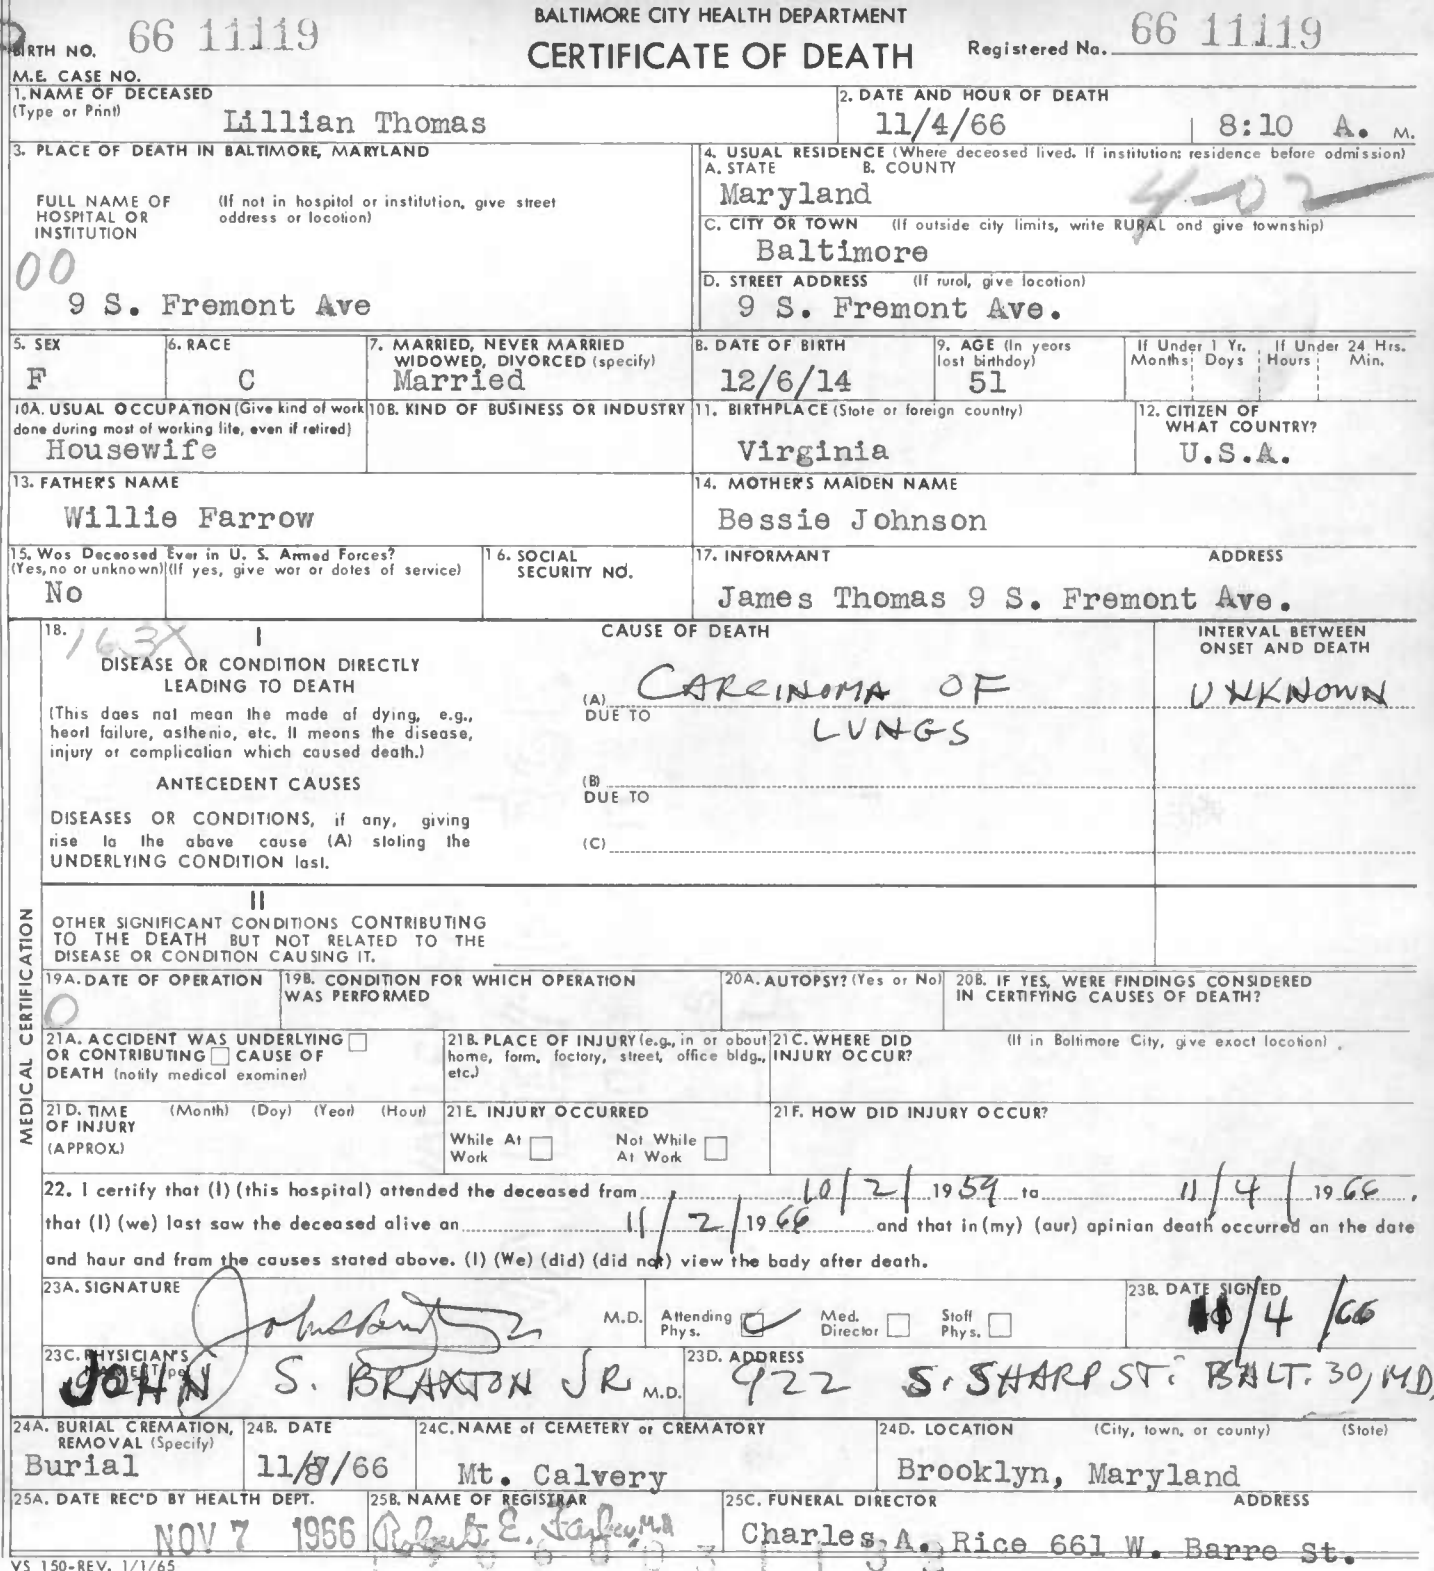 BALTIMORE CITY HEALTH DEPARTMENT
CERTIFICATE OF DEATH
BIRTH NO. 66 11119
Registered No. 66 11119
M.E. CASE NO.
1. NAME OF DECEASED
(Type or Print)
Lillian Thomas
2. DATE AND HOUR OF DEATH
11/4/66 8:10 A. M.
3. PLACE OF DEATH IN BALTIMORE, MARYLAND
FULL NAME OF HOSPITAL OR INSTITUTION
(If not in hospital or institution, give street address or location)
00
9 S. Fremont Ave
4. USUAL RESIDENCE (Where deceased lived. If institution: residence before admission)
A. STATE B. COUNTY
Maryland 4-02
C. CITY OR TOWN (If outside city limits, write RURAL and give township)
Baltimore
D. STREET ADDRESS (If rural, give location)
9 S. Fremont Ave.
5. SEX
F
6. RACE
C
7. MARRIED, NEVER MARRIED
WIDOWED, DIVORCED (specify)
Married
8. DATE OF BIRTH
12/6/14
9. AGE (In years
last birthday)
51
If Under 1 Yr.
Months Days
If Under 24 Hrs.
Hours Min.
10A. USUAL OCCUPATION (Give kind of work
done during most of working life, even if retired)
Housewife
10B. KIND OF BUSINESS OR INDUSTRY
11. BIRTHPLACE (State or foreign country)
Virginia
12. CITIZEN OF
WHAT COUNTRY?
U.S.A.
13. FATHER'S NAME
Willie Farrow
14. MOTHER'S MAIDEN NAME
Bessie Johnson
15. Was Deceased Ever in U. S. Armed Forces?
(Yes, no or unknown) (If yes, give war or dates of service)
No
16. SOCIAL
SECURITY NO.
17. INFORMANT ADDRESS
James Thomas 9 S. Fremont Ave.
MEDICAL CERTIFICATION
18. 163X
I
DISEASE OR CONDITION DIRECTLY
LEADING TO DEATH
(This does not mean the mode of dying, e.g.,
heart failure, asthenia, etc. It means the disease,
injury or complication which caused death.)
ANTECEDENT CAUSES
DISEASES OR CONDITIONS, if any, giving
rise to the above cause (A) stating the
UNDERLYING CONDITION last.
CAUSE OF DEATH
(A) CARCINOMA OF
DUE TO LUNGS
(B)
DUE TO
(C)
INTERVAL BETWEEN
ONSET AND DEATH
UNKNOWN
II
OTHER SIGNIFICANT CONDITIONS CONTRIBUTING
TO THE DEATH BUT NOT RELATED TO THE
DISEASE OR CONDITION CAUSING IT.
19A. DATE OF OPERATION
0
19B. CONDITION FOR WHICH OPERATION
WAS PERFORMED
20A. AUTOPSY? (Yes or No)
20B. IF YES, WERE FINDINGS CONSIDERED
IN CERTIFYING CAUSES OF DEATH?
21A. ACCIDENT WAS UNDERLYING
OR CONTRIBUTING CAUSE OF
DEATH (notify medical examiner)
21B. PLACE OF INJURY (e.g., in or about
home, farm, factory, street, office bldg.,
etc.)
21C. WHERE DID
INJURY OCCUR?
(If in Baltimore City, give exact location)
21D. TIME (Month) (Day) (Year) (Hour)
OF INJURY
(APPROX.)
21E. INJURY OCCURRED
While At Work
Not While At Work
21F. HOW DID INJURY OCCUR?
22. I certify that (I) (this hospital) attended the deceased from 10/2/ 1959 to 11/4/ 1966,
that (I) (we) last saw the deceased alive on 11/2/1966 and that in (my) (our) opinion death occurred on the date
and hour and from the causes stated above. (I) (We) (did) (did not) view the body after death.
23A. SIGNATURE
M.D.
Attending Phys.
Med. Director
Staff Phys.
23B. DATE SIGNED
11/4/66
23C. PHYSICIAN'S
JOHN S. BRAXTON JR M.D.
23D. ADDRESS
922 S. SHARP ST. BALT. 30, MD.
24A. BURIAL CREMATION,
REMOVAL (Specify)
Burial
24B. DATE
11/8/66
24C. NAME of CEMETERY or CREMATORY
Mt. Calvery
24D. LOCATION (City, town, or county) (State)
Brooklyn, Maryland
25A. DATE REC'D BY HEALTH DEPT.
NOV 7 1966
25B. NAME OF REGISTRAR
Robert E. Farber, M.D.
25C. FUNERAL DIRECTOR ADDRESS
Charles A. Rice 661 W. Barre St.
VS 150-REV. 1/1/65